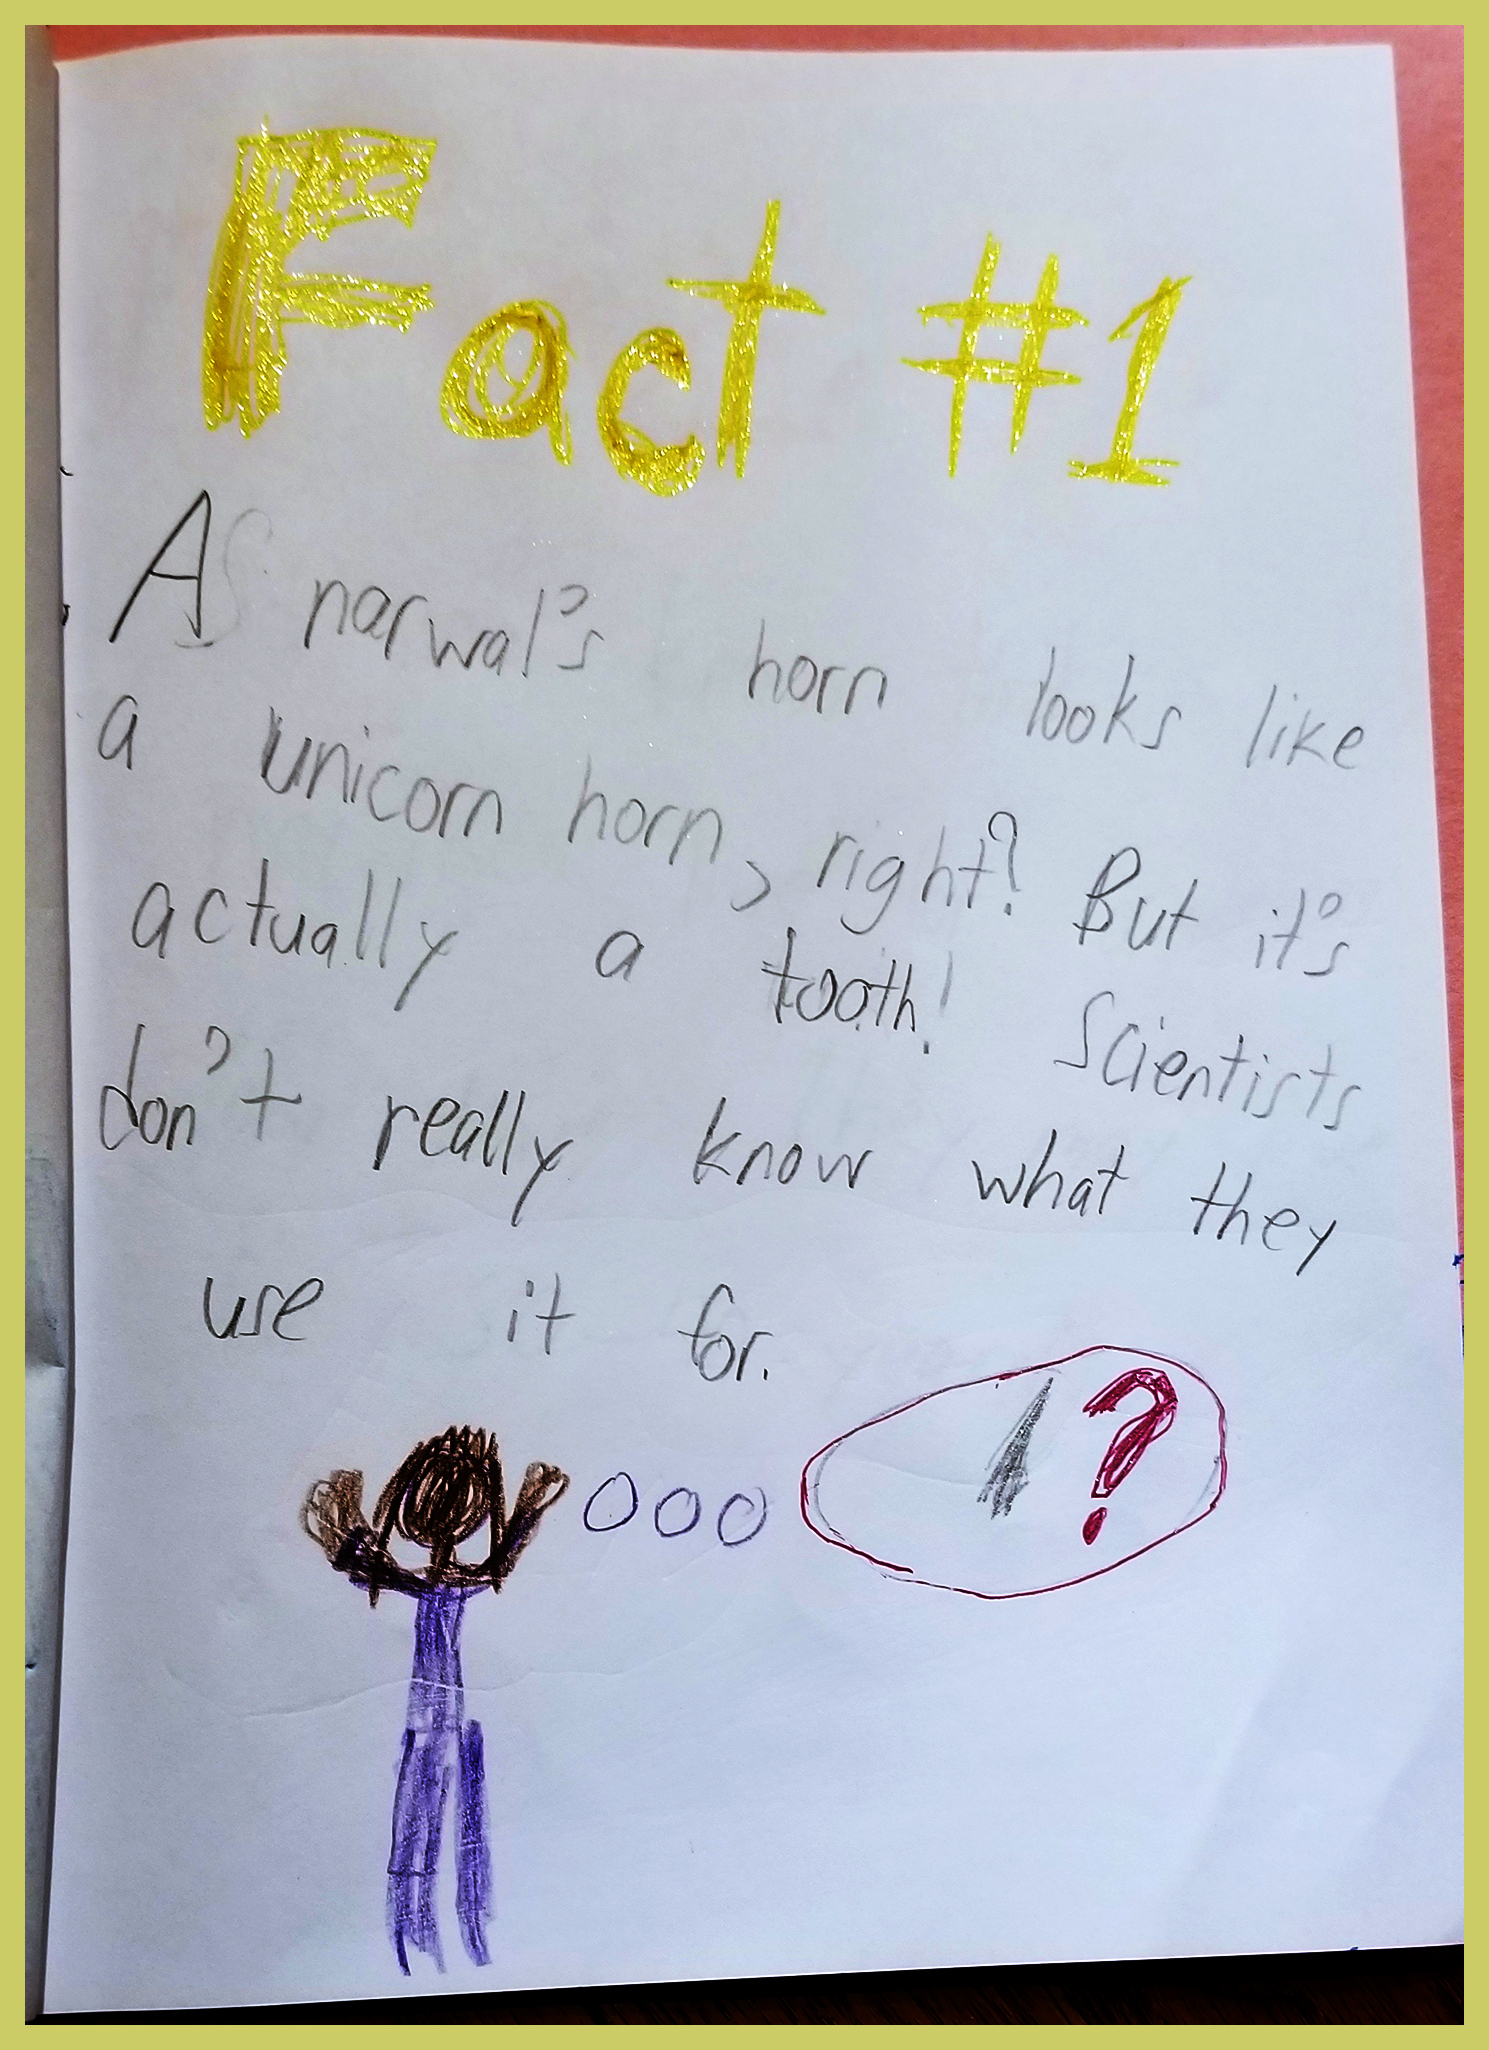 Fact #1
A narwal's horn looks like
a unicorn horn, right? But it's
actually a tooth! Scientists
don't really know what they
use it for.
?